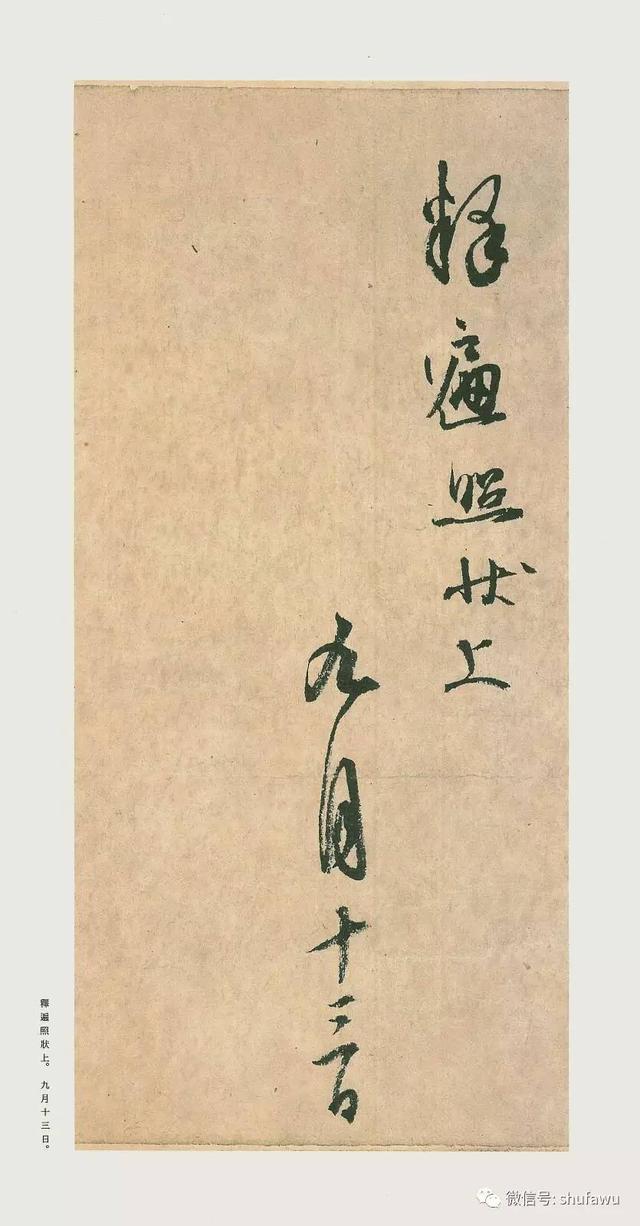 释遍照状上
九月十三日
釋遍照狀上。九月十三日。
微信号: shufawu